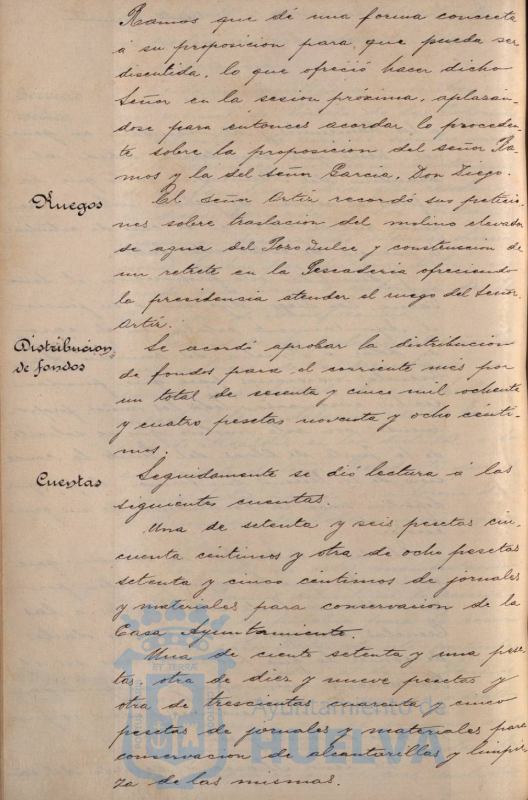 Ramos que dé una forma concreta
á su proposicion para que pueda ser
discutida, lo que ofreció hacer dicho
Señor en la sesion próxima, aplazan-
dose para entonces acordar lo proceden-
te sobre la proposicion del señor Ra-
mos y la del Señor Garcia, Don Diego.
Ruegos
El señor Ortiz recordó sus peticio-
nes sobre traslacion del molino elevador
de agua del Pozo Dulce y construccion de
un retrete en la Pescaderia ofreciendo
la presidencia atender el ruego del Señor
Ortiz.
Distribucion
de fondos
Se acordó aprobar la distribucion
de fondos para el corriente mes por
un total de sesenta y cinco mil ochenta
y cuatro pesetas noventa y ocho centi-
mos.
Cuentas
Seguidamente se dió lectura á las
siguientes cuentas.
Una de setenta y seis pesetas cin-
cuenta centimos y otra de ocho pesetas
setenta y cinco centimos de jornales
y materiales para conservacion de la
Casa Ayuntamiento.
Una de ciento setenta y una pese-
tas, otra de diez y nueve pesetas y
otra de trescientas cuarenta y cinco
pesetas de jornales y materiales para
conservacion de alcantarillas y limpie-
za de las mismas.
Ayuntamiento de
HUELVA